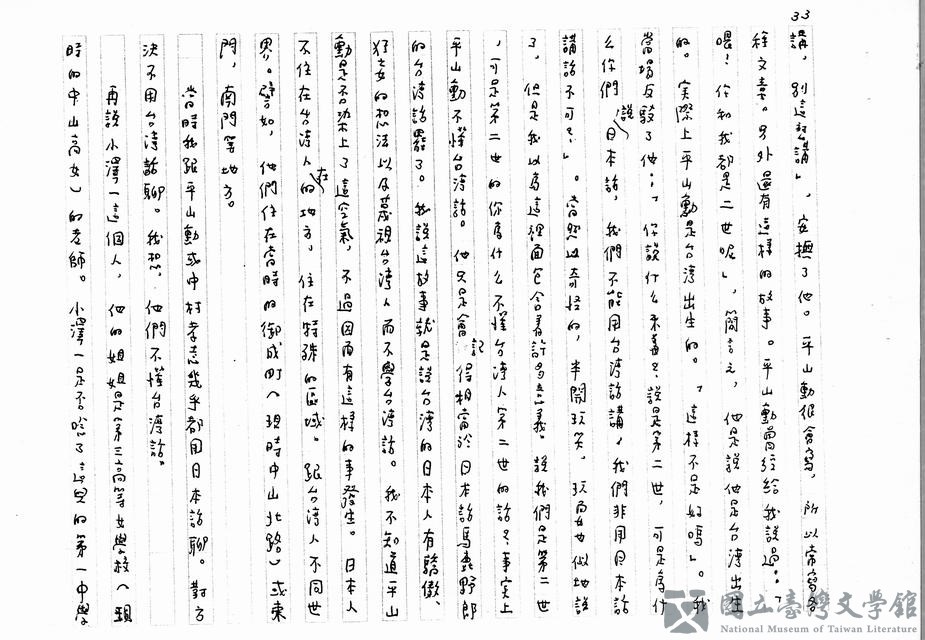 33
講，別這麼講」，安撫了他。平山勳很會寫，所以常寫各
種文章。另外還有這樣的故事。平山勳曾經給我說過：「
喂！你和我都是二世呢」，簡言之，他是說他是台灣出生
的。實際上平山勳是台灣出生的。「這樣不是好嗎」。我
當場反駁了他：「你說什么來著？說是第二世，可是為什
么你們說日本話，我們不能用台灣話講，我們非用日本話
講話不可？」。當然以奇怪的，半開玩笑，玩兒女似地說
了，但是我以為這裡面包含著許多意義。說我們是第二世
，可是第二世的你為什么不懂台灣人第二世的話？事实上
平山勳不懂台灣話。他只是會記得相當於日本話馬鹿野郎
的台灣話罷了。我說這故事就是說台灣的日本人有驕傲、
狂妄的想法以及蔑視台灣人而不學台灣話。我不知道平山
勳是否染上了這空氣，不過因而有這樣的事發生。日本人
不住在台灣人在的地方，住在特殊的區域。跟台灣人不同世
界。譬如，他們住在當時的御成町（現時中山北路）或東
門，南門等地方。
當時我跟平山勳或中村孝志幾乎都用日本話聊。對方
決不用台灣話聊。我想，他們不懂台灣話。
再說小澤一這個人，他的姐姐是第三高等女學校（現
時的中山高女）的老師。小澤一是否唸了這里的第一中學
國立臺灣文學館
National Museum of Taiwan Literature